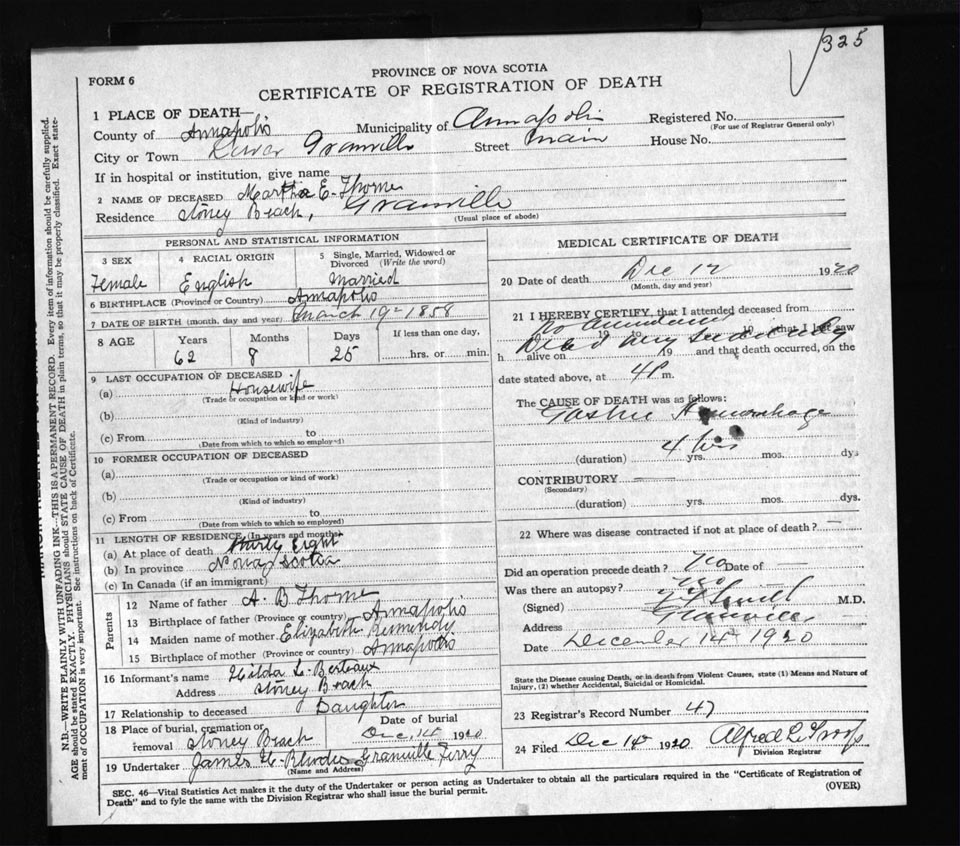 325
FORM 6
PROVINCE OF NOVA SCOTIA
CERTIFICATE OF REGISTRATION OF DEATH
1 PLACE OF DEATH—
County of Annapolis Municipality of Annapolis Registered No.
(For use of Registrar General only)
City or Town Lower Granville Street Main House No.
If in hospital or institution, give name
2 NAME OF DECEASED Martha E. Thorne
Residence Stoney Beach, Granville
(Usual place of abode)
PERSONAL AND STATISTICAL INFORMATION
3 SEX 4 RACIAL ORIGIN 5 Single, Married, Widowed or Divorced (Write the word)
Female English Married
6 BIRTHPLACE (Province or Country) Annapolis
7 DATE OF BIRTH (month, day and year) March 19th 1858
8 AGE Years Months Days If less than one day,
62 8 25 hrs. or min.
9 LAST OCCUPATION OF DECEASED
(a) Housewife
(Trade or occupation or kind or work)
(b)
(Kind of industry)
(c) From to
(Date from which to which so employed)
10 FORMER OCCUPATION OF DECEASED
(a)
(Trade or occupation or kind of work)
(b)
(Kind of industry)
(c) From to
(Date from which to which so employed)
11 LENGTH OF RESIDENCE (In years and months)
(a) At place of death Eight
(b) In province Nova Scotia
(c) In Canada (if an immigrant)
Parents
12 Name of father A. B Thorne
13 Birthplace of father (Province or country) Annapolis
14 Maiden name of mother Elizabeth
15 Birthplace of mother (Province or country) Annapolis
16 Informant's name Hilda L. Berteaux
Address Stoney Beach
17 Relationship to deceased Daughter
18 Place of burial, cremation or removal Stoney Beach Date of burial Dec, 14 1920
19 Undertaker James H. Rhodes Granville Ferry
(Name and Address)
MEDICAL CERTIFICATE OF DEATH
20 Date of death Dec 12 1920
(Month, day and year)
21 I HEREBY CERTIFY, that I attended deceased from
No 19 to 19 , that I last saw
Died very suddenly
h alive on 19 and that death occurred, on the
date stated above, at 4 P m.
The CAUSE OF DEATH was as follows:
Gastric Hemorrhage
4 hrs
(duration) yrs. mos. dys
CONTRIBUTORY
(Secondary)
(duration) yrs. mos. dys.
22 Where was disease contracted if not at place of death?
Did an operation precede death? No Date of
Was there an autopsy? no
(Signed) M.D.
Address Granville
Date December 14th 1920
State the Disease causing Death, or in death from Violent Causes, state (1) Means and Nature of
Injury, (2) whether Accidental, Suicidal or Homicidal.
23 Registrar's Record Number 47
24 Filed Dec 14th 1920 Alfred
Division Registrar
SEC. 46—Vital Statistics Act makes it the duty of the Undertaker or person acting as Undertaker to obtain all the particulars required in the "Certificate of Registration of
Death" and to fyle the same with the Division Registrar who shall issue the burial permit. (OVER)
N.B.—WRITE PLAINLY WITH UNFADING INK—THIS IS A PERMANENT RECORD. Every item of information should be carefully supplied.
AGE should be stated EXACTLY. PHYSICIANS should STATE CAUSE OF DEATH in plain terms, so that it may be properly classified. Exact state-
ment of OCCUPATION is very important. See instructions on back of Certificate.